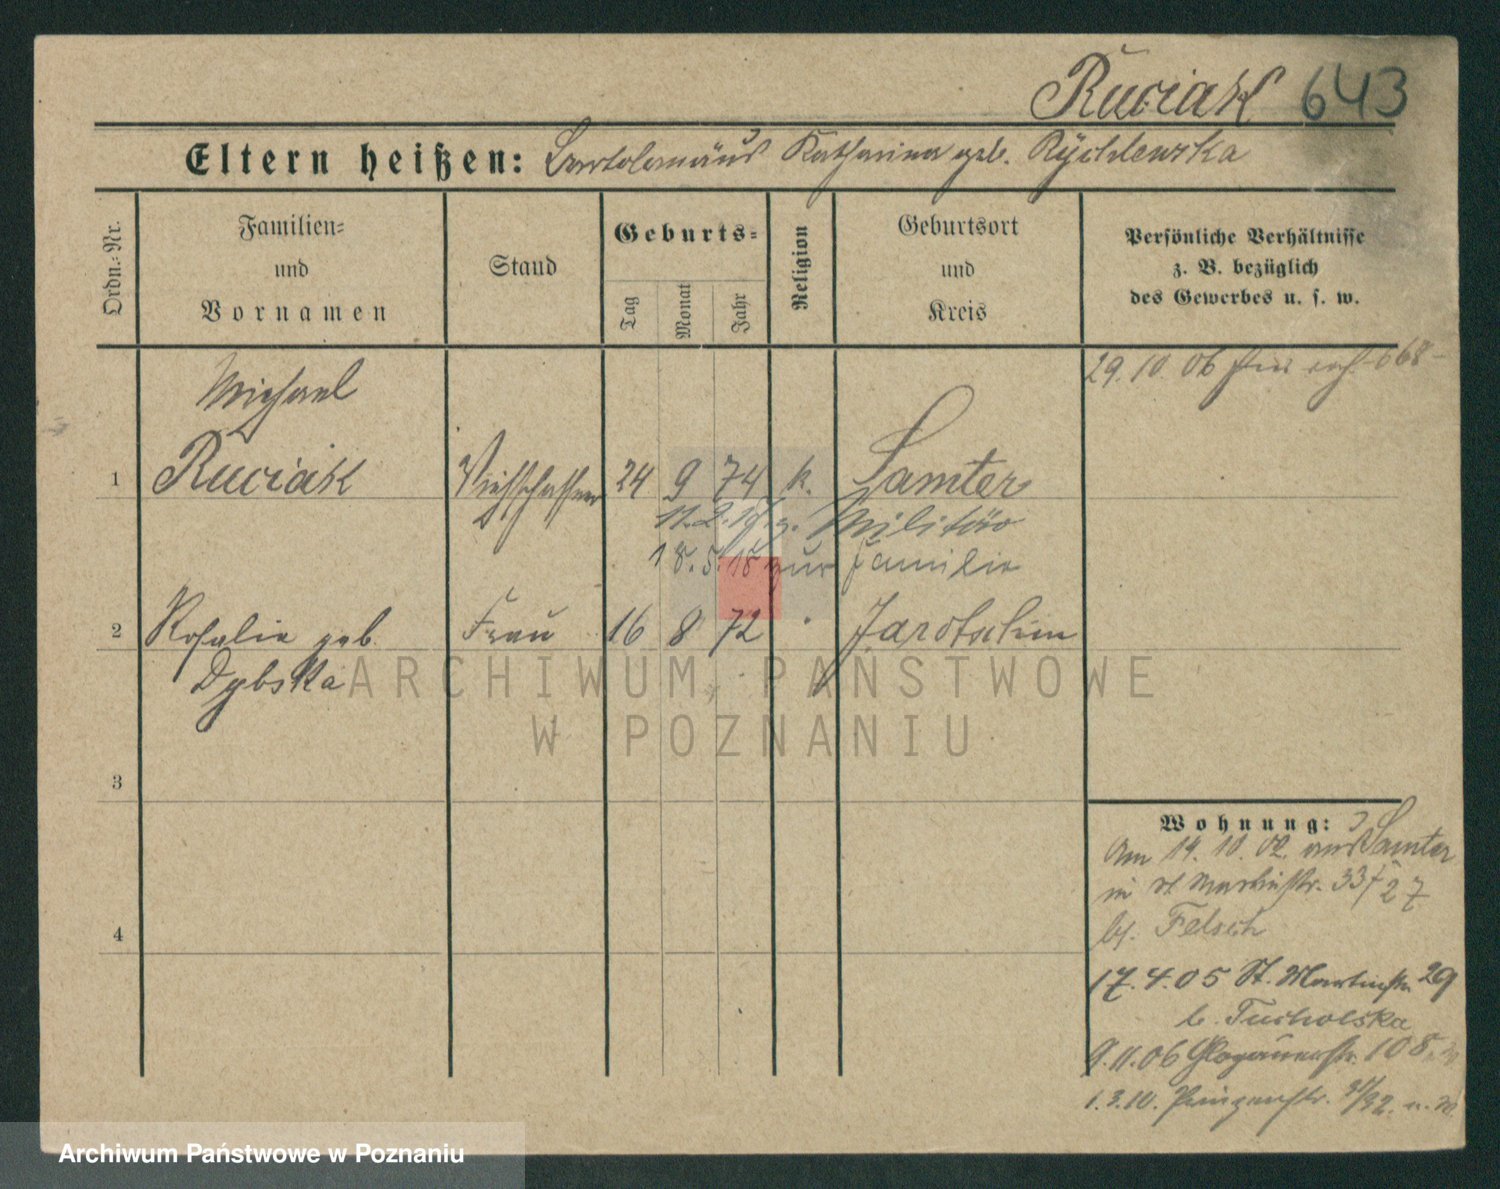 Ruciak 643
Eltern heißen: Bartolomäus Katharina geb. Rychlewska
Ordn.-Nr.
Familien-
und
Vornamen
Stand
Geburts-
Tag
Monat
Jahr
Religion
Geburtsort
und
Kreis
Persönliche Verhältnisse
z. B. bezüglich
des Gewerbes u. s. w.
29.10.06
Michael
1 Ruciak 24 9 74 k. Samter
Militär
18.5.18 zur Familie
2 Rosalie geb. Frau 16 8 72 " Jarotschin
Dybska
3
4
Wohnung:
Am 14.10.02 aus Samter
in St Martinstr. 33
b. Felsch
17.4.05 St. Martinstr 29
b. Tucholska
9.11.06 Glogauerstr. 108
1.3.10. Prinzenstr.
ARCHIWUM PAŃSTWOWE
W POZNANIU
Archiwum Państwowe w Poznaniu